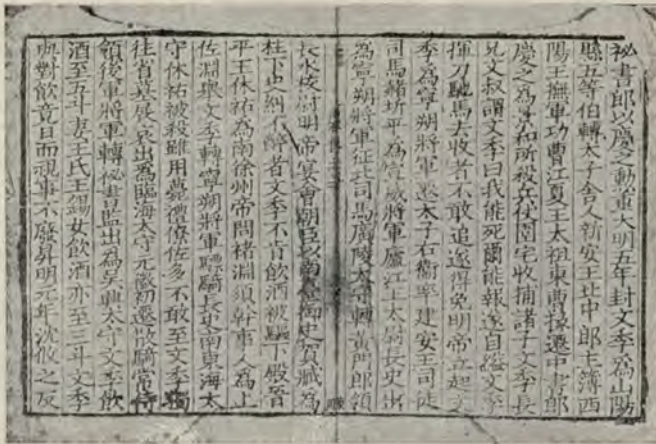 祕書郎以慶之勳重大明五年封文季為山陽
縣五等伯轉太子舍人新安王北中郎主簿西
陽王撫軍功曹江夏王太祖東曹掾遷中書郎
慶之為景和所殺兵仗圍宅收捕諸子文季長
兄文叔謂文季曰我能死爾能報遂自縊文季
揮刀馳馬去收者不敢追遂得免明帝立起文
季為寧朔將軍遷太子右衛率建安王司徒
司馬赭圻平為宣威將軍廬江王太尉長史出
為寧朔將軍征北司馬廣陵太守轉黃門郎領
長水校尉明帝宴會朝臣以南臺御史賀臧為
柱下史糾不醉者文季不肯飲酒被驅下殿晉
平王休祐為南徐州帝問褚淵須幹事人為上
佐淵舉文季轉寧朔將軍驃騎長史南東海太
守休祐被殺雖用薨禮僚佐多不敢至文季獨
往省墓展哀出為臨海太守元徽初遷散騎常侍
領後軍將軍轉祕書監出為吳興太守文季飲
酒至五斗妻王氏王錫女飲酒亦至三斗文季
與對飲竟日而視事不廢昇明元年沈攸之反